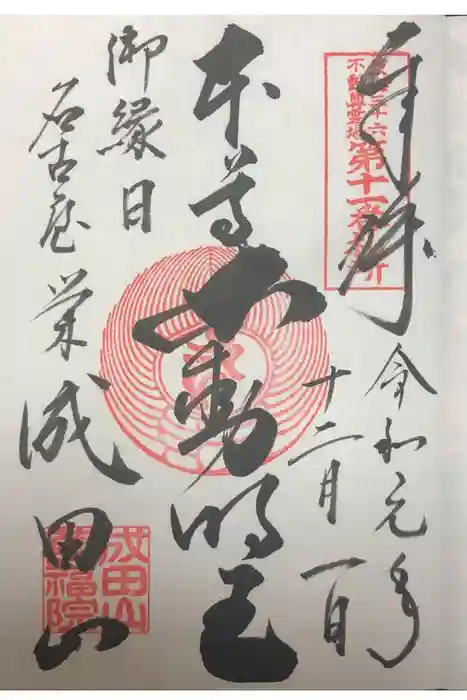 奉拝
令和元年
十二月一日
本尊不動明王
御縁日
名古屋栄
成田山
不動尊霊場
第十一番
成田山
萬福院